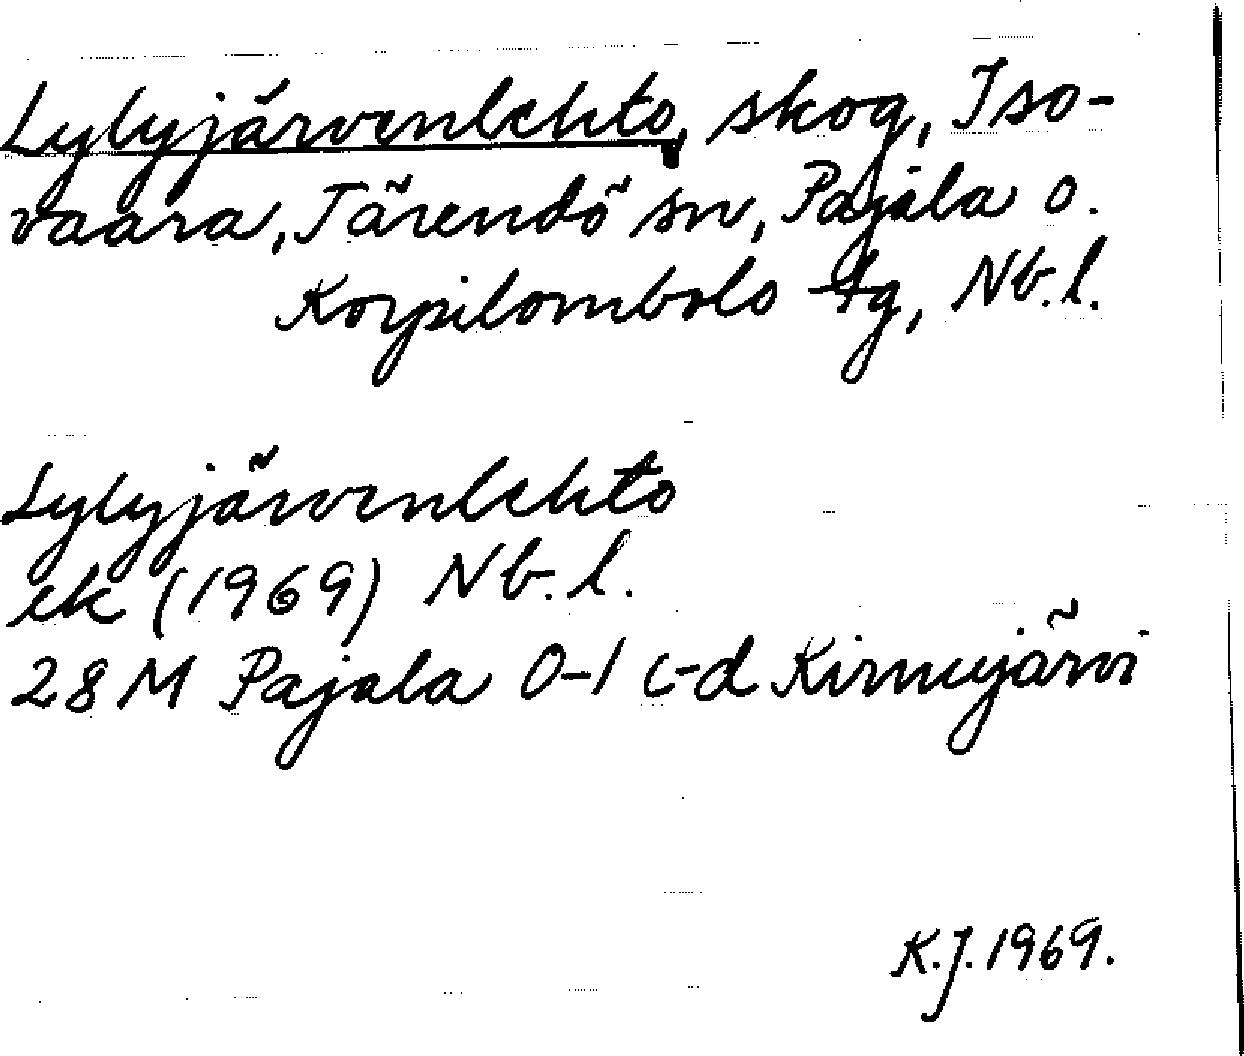 Lylyjärvenlehto, skog, Iso-
vaara, Tärendö sn, Pajala o.
Korpilombolo tg, Nb.l.
Lylyjärvenlehto
ek (1969) Nb.l.
28 M Pajala 0-1 c-d Kirnujärvi
K.J. 1969.